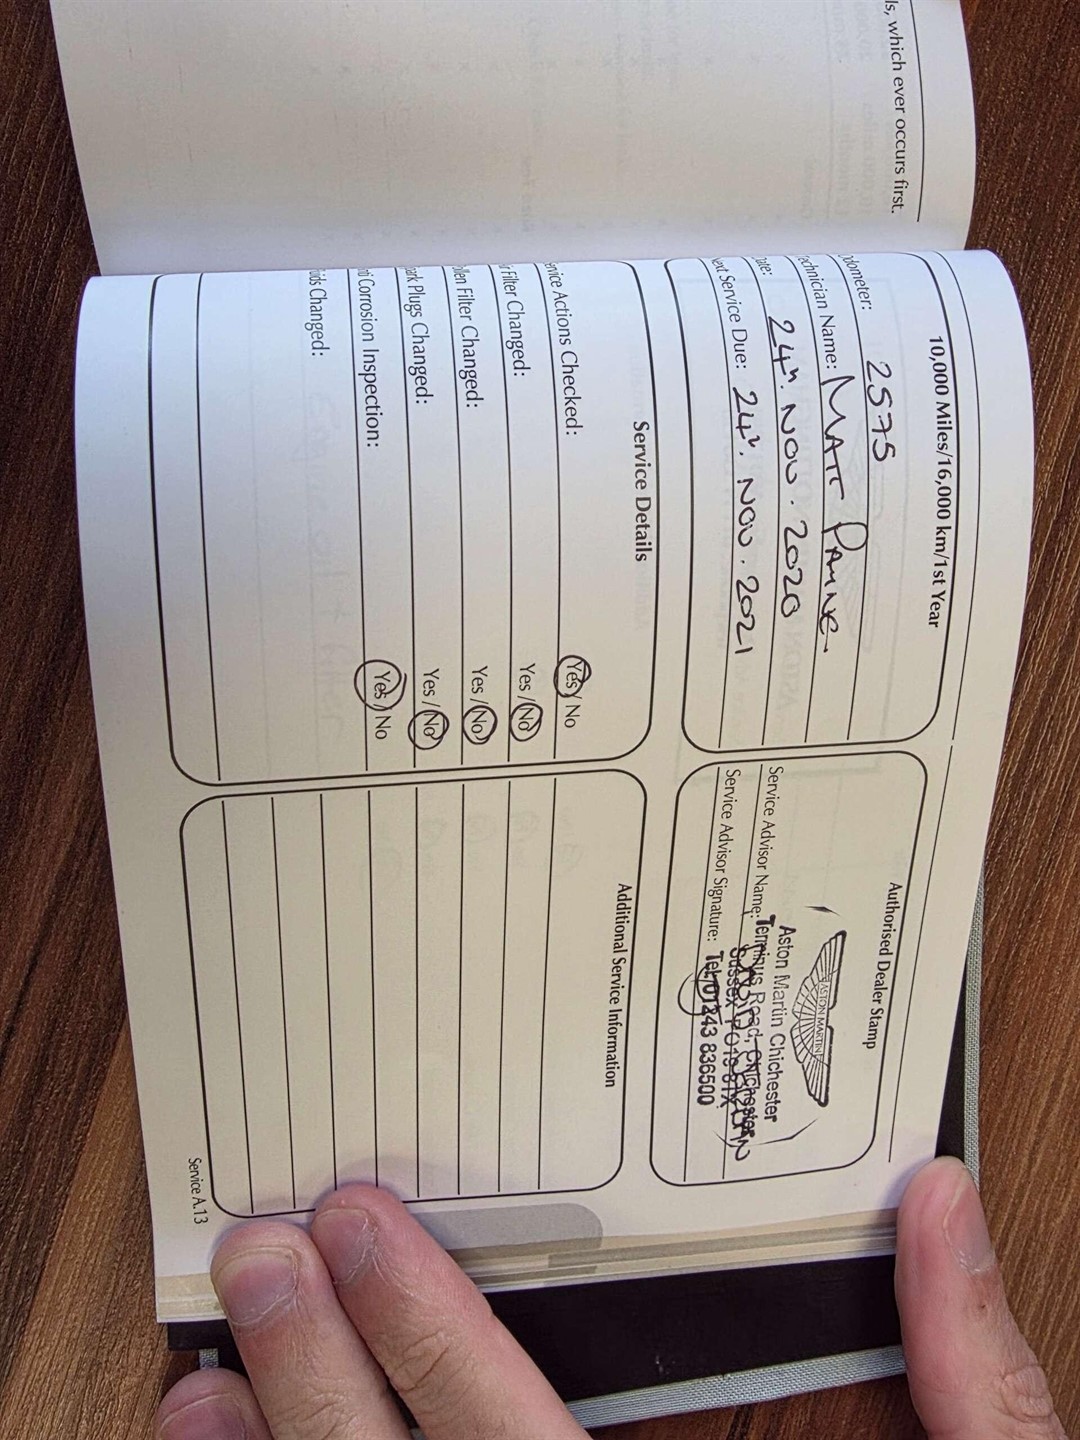 ls, which ever occurs first.
10,000 Miles/16,000 km/1st Year
dometer: 2575
echnician Name: MATT PAYNE
ate: 24th. NOV. 2020
ext Service Due: 24th. NOV. 2021
Authorised Dealer Stamp
ASTON MARTIN
Aston Martin Chichester
Service Advisor Name: Terminus Road, Chichester
Sussex
Service Advisor Signature: Tel: 01243 836500
Service Details
ervice Actions Checked: Yes / No
r Filter Changed: Yes / No
ollen Filter Changed: Yes / No
park Plugs Changed: Yes / No
nti Corrosion Inspection: Yes / No
uids Changed:
Additional Service Information
Service A.13